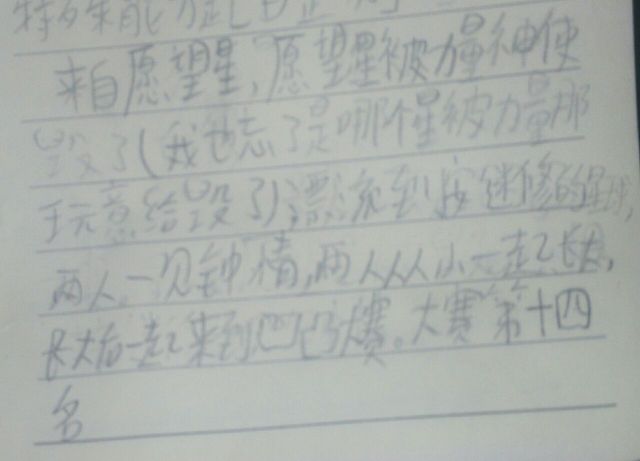 特殊能力
来自愿望星,愿望星被力量神使
毁了(我也忘了是哪个星被力量那
玩意给毁了),漂流到安迷修的星球,
两人一见钟情,两人从小一起长大,
长大后一起来到凹凸大赛。大赛第十四
名